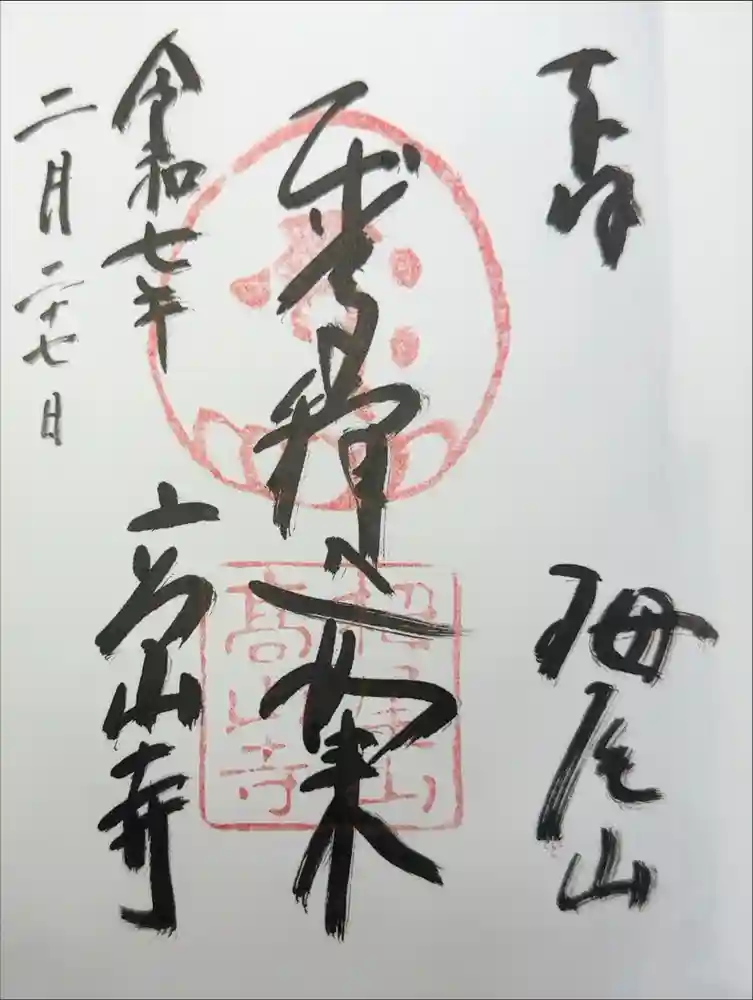 栂尾山
釋迦如来
令和七年
二月二十七日
高山寺
栂尾山
高山寺